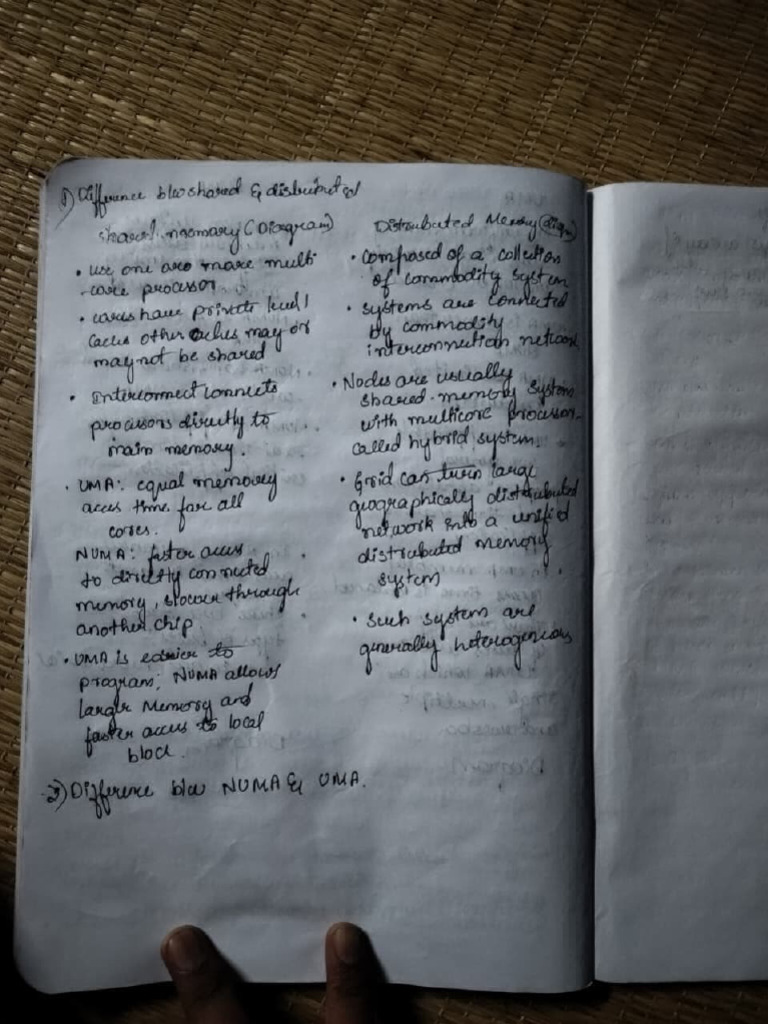 1) Difference b/w shared & distributed
shared memory (Diagram)
• use one are more multi
-core processor
• cores have private level 1
cache other caches may or
may not be shared
• Interconnect connects
processors directly to
main memory.
• UMA: equal memory
access time for all
cores.
NUMA: faster access
to directly connected
memory, slower through
another chip
• UMA is easier to
program; NUMA allows
larger Memory and
faster access to local
block.
Distributed Memory (diag)
• composed of a collection
of commodity system
• systems are connected
by commodity
interconnection network
• Nodes are usually
shared-memory system
with multicore processor
called hybrid system.
• Grid can turn large
geographically distributed
network into a unified
distributed memory
system
• such system are
generally heterogeneous
2) Difference b/w NUMA & UMA.